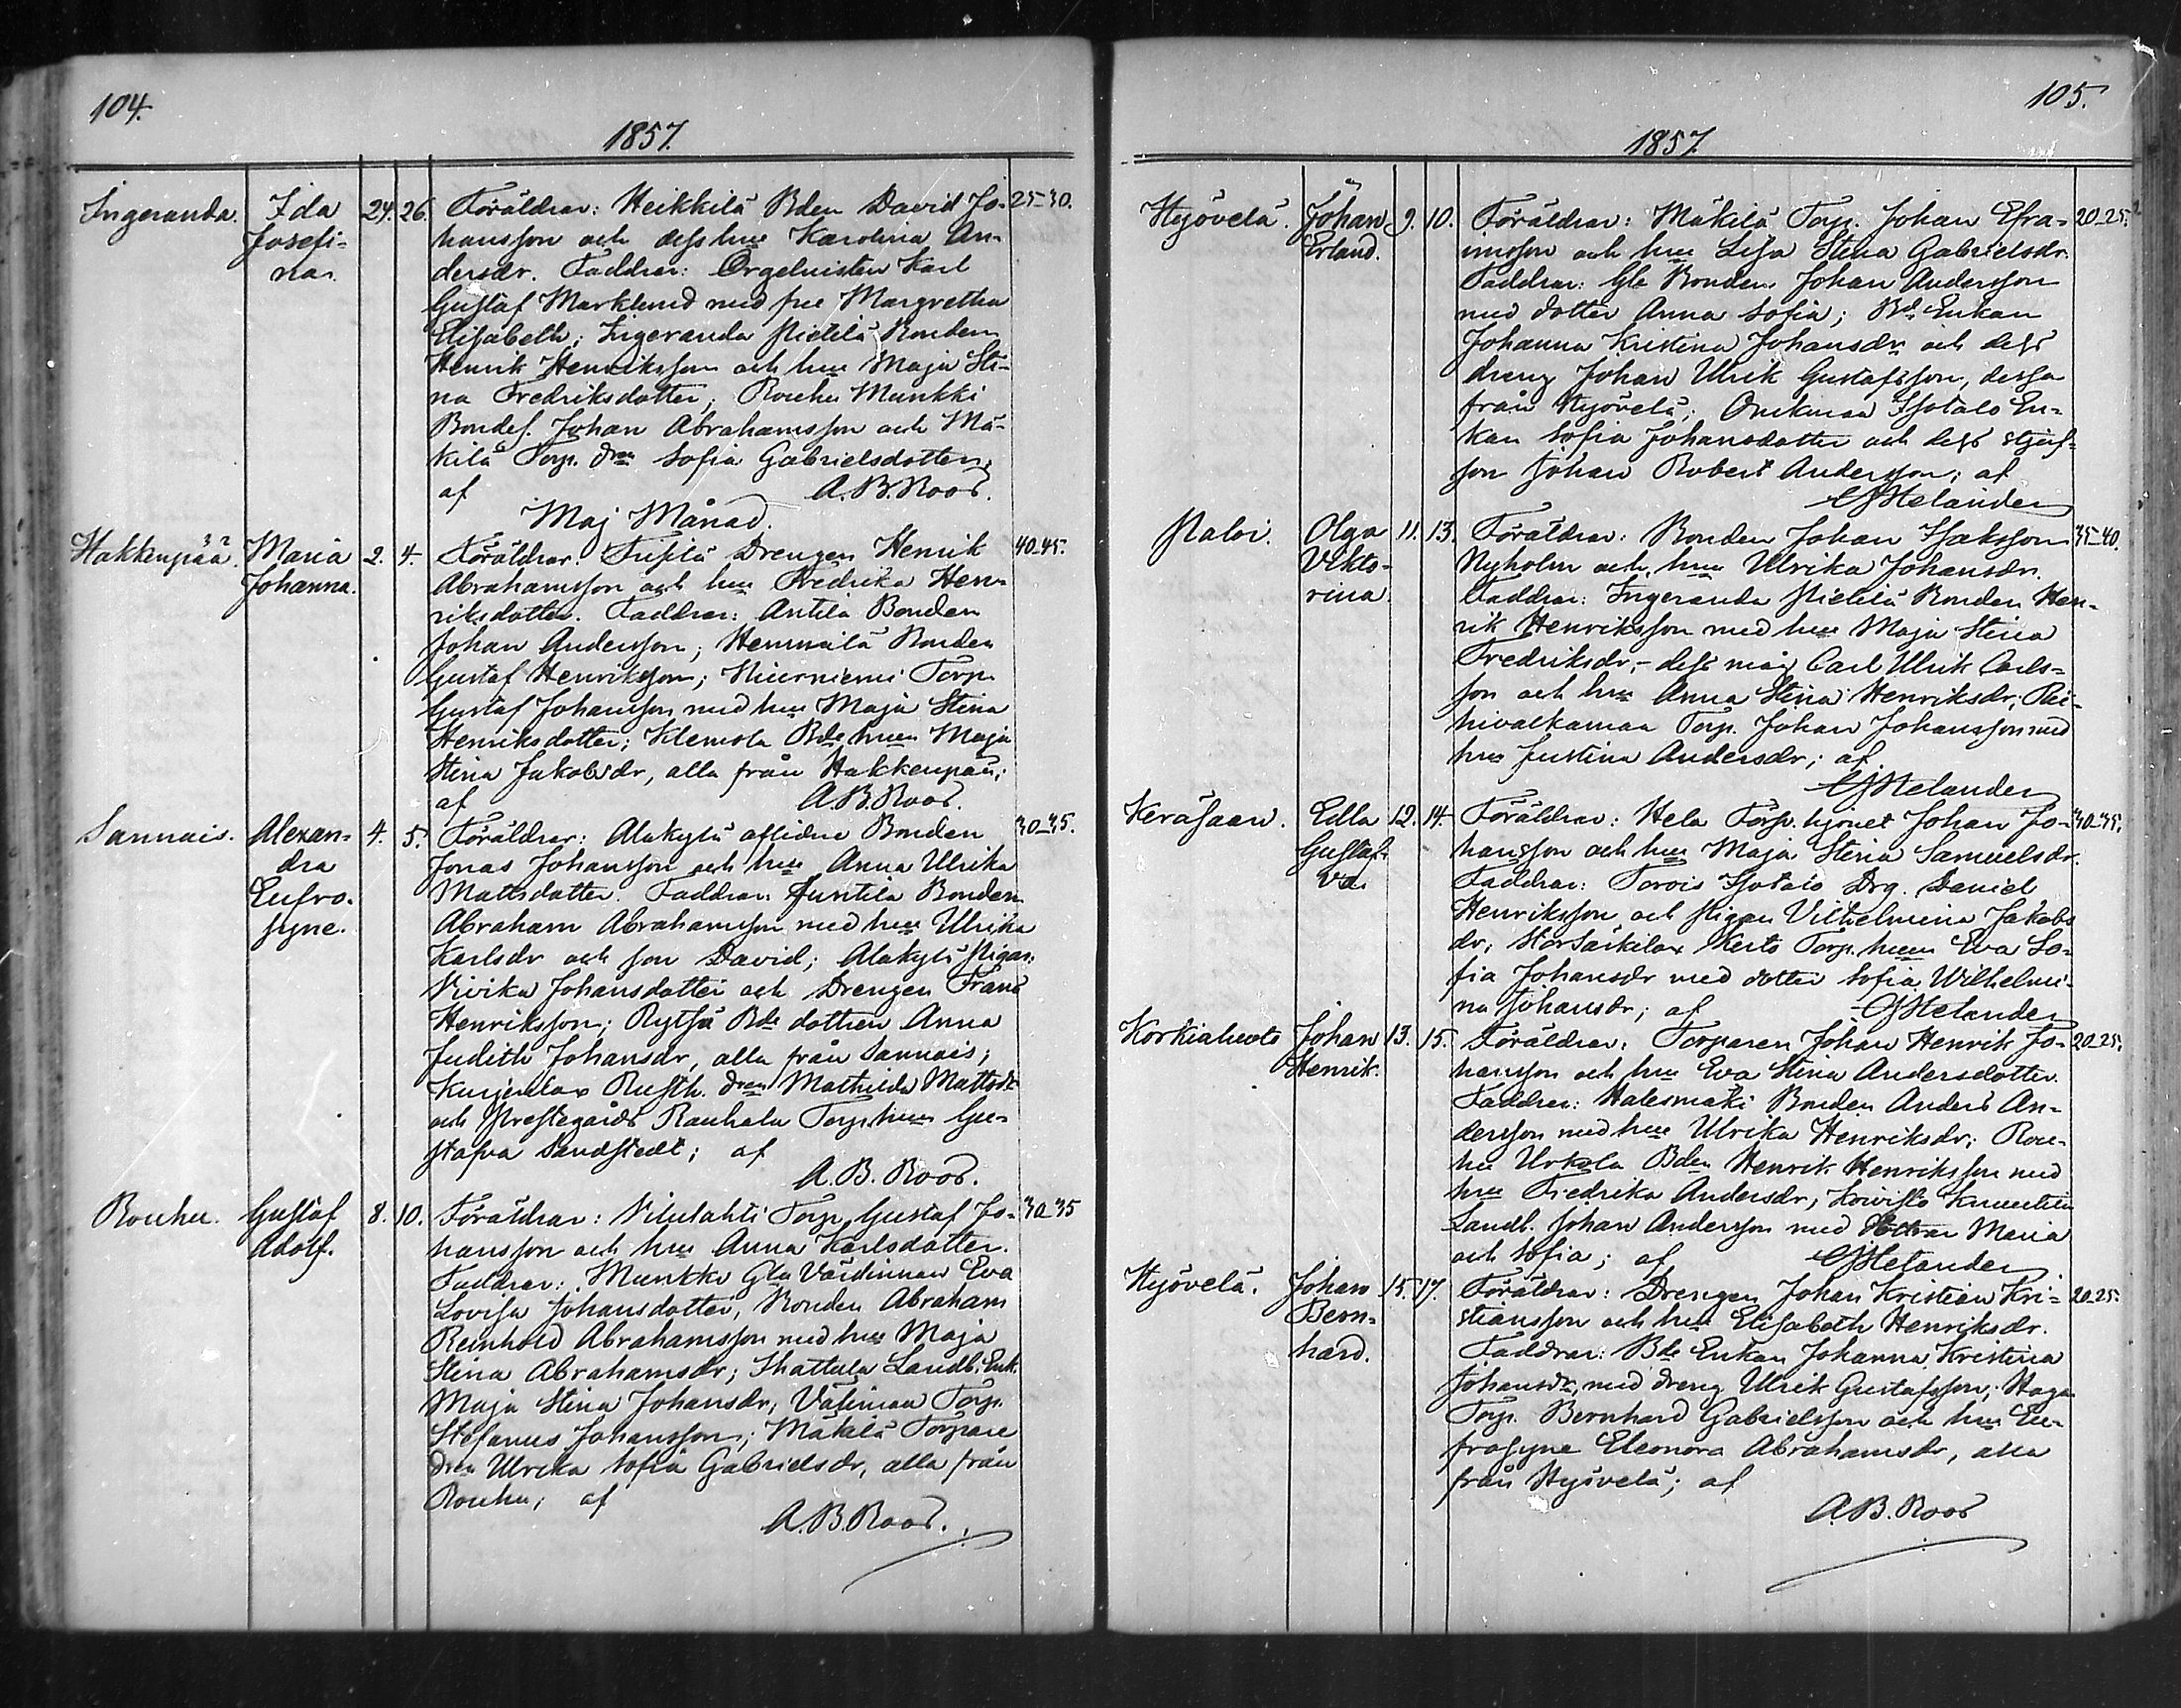 104.
1857.
Ingeranda. Ida 24. 26. Föräldrar: Heikkilä Bden David Jo- 25-30.
Josefi- hansson och dess hu Karolina An-
na. dersdr. Faddrar: Orgelnisten Karl
Gustaf Marklund med fru Margretha
Elisabeth; Ingeranda Pietilä Bonden
Henrik Henriksson och hu Maja Sti-
na Fredriksdotter; Rouhu Munkki
Bondes. Johan Abrahamsson och Mä-
kilä Torp. dr Sofia Gabrielsdotter;
af A. B. Roos.
Maj Månad.
Hakkenpää. Maria 2. 4. Föräldrar: Drengen Henrik 40-45.
Johanna. Abrahamsson och hu Fredrika Hen-
riksdotter. Faddrar: Antila Bonden
Johan Andersson; Hemmilä Bonden
Gustaf Henriksson; Torp.
Gustaf Johansson med hu Maja Stina
Henriksdotter; Klemola Bde hun Maja
Stina Jakobsdr, alla från Hakkenpää;
af A. B. Roos.
Sannais. Alexan- 4. 5. Föräldrar: Alakylä aflidne Bonden 30-35.
dra Jonas Johansson och hu Anna Ulrika
Eufro- Mattsdotter. Faddrar: Juntila Bonden
syne. Abraham Abrahamsson med hu Ulrika
Karlsdr och son David; Alakylä Pigan
Vivika Johansdotter och Drengen Frans
Henriksson; Bde dottren Anna
Judith Johansdr, alla från Sannais;
Kurjenlax Rusth. Mathilda Mattsdr
och Prestegårds Rauhala Torp. hun Gu-
stafva Sandstedt; af
A. B. Roos.
Rouhu. Gustaf 8. 10. Föräldrar: Vilulahti Torp. Gustaf Jo- 30-35
Adolf. hansson och hu Anna Karlsdotter.
Faddrar: Munkki Gla Värdinnan Eva
Lovisa Johansdotter, Bonden Abraham
Reinhold Abrahamsson med hu Maja
Stina Abrahamsdr; Landb. Enk.
Maja Stina Johansdr; Torp.
Stefanus Johansson; Mäkilä Torpare
Ulrika Sofia Gabrielsdr, alla från
Rouhu; af
A. B. Roos.
105.
1857.
Hyövelä. Johan 9. 10. Föräldrar: Mäkilä Torp. Johan Efra- 20-25.
Erland. imsson och hu Lisa Stina Gabrielsdr.
Faddrar: Gle Bonden Johan Andersson
med dotter Anna Sofia; Bde Enkan
Johanna Kristina Johansdr och dess
dreng Johan Ulrik Gustafsson, dessa
från Hyövelä; Isotalo En-
kan Sofia Johansdotter och dess styf-
son Johan Robert Andersson; af
Helander
Paloi. Olga 11. 13. Föräldrar: Bonden Johan Isaksson 35-40.
Vikto- Nyholm och hu Ulrika Johansdr.
rina. Faddrar: Ingeranda Pietilä Bonden Hen-
rik Henriksson med hu Maja Stina
Fredriksdr, dess måg Carl Ulrik Carls-
son och hu Anna Stina Henriksdr;
Torp. Johan Johansson med
hu Justina Andersdr; af
Helander
Keräsaari. Edla 12. 14. Föräldrar: Hela Torp. hjonet Johan Jo- 30-35.
Gustaf- hansson och hu Maja Stina Samuelsdr.
va. Faddrar: Isotalo Drg. Daniel
Henriksson och Pigan Vilhelmina Jakobs
dr; Storsärkilax Torp. hun Eva So-
fia Johansdr med dotter Sofia Wilhelmi-
na Johansdr; af Helander
Korkiahuoto Johan 13. 15. Föräldrar: Torparen Johan Henrik Jo- 20-25.
Henrik. hansson och hu Eva Stina Andersdotter.
Faddrar: Halesmäki Bonden Anders An-
dersson med hu Ulrika Henriksdr; Rou-
hu Urkola Bden Henrik Henriksson med
hu Fredrika Andersdr; Koivisto
Landb. Johan Andersson med döttrar Maria
och Sofia; af Helander
Hyövelä. Johan 15. 17. Föräldrar: Drengen Johan Kristian Kri- 20-25.
Bern- stiansson och hu Elisabeth Henriksdr.
hard. Faddrar: Bde Enkan Johanna Kristina
Johansdr, med dreng Ulrik Gustafsson; Haga
Torp. Bernhard Gabrielsson och hu Eu-
frosyne Eleonora Abrahamsdr, alla
från Hyövelä; af
A. B. Roos